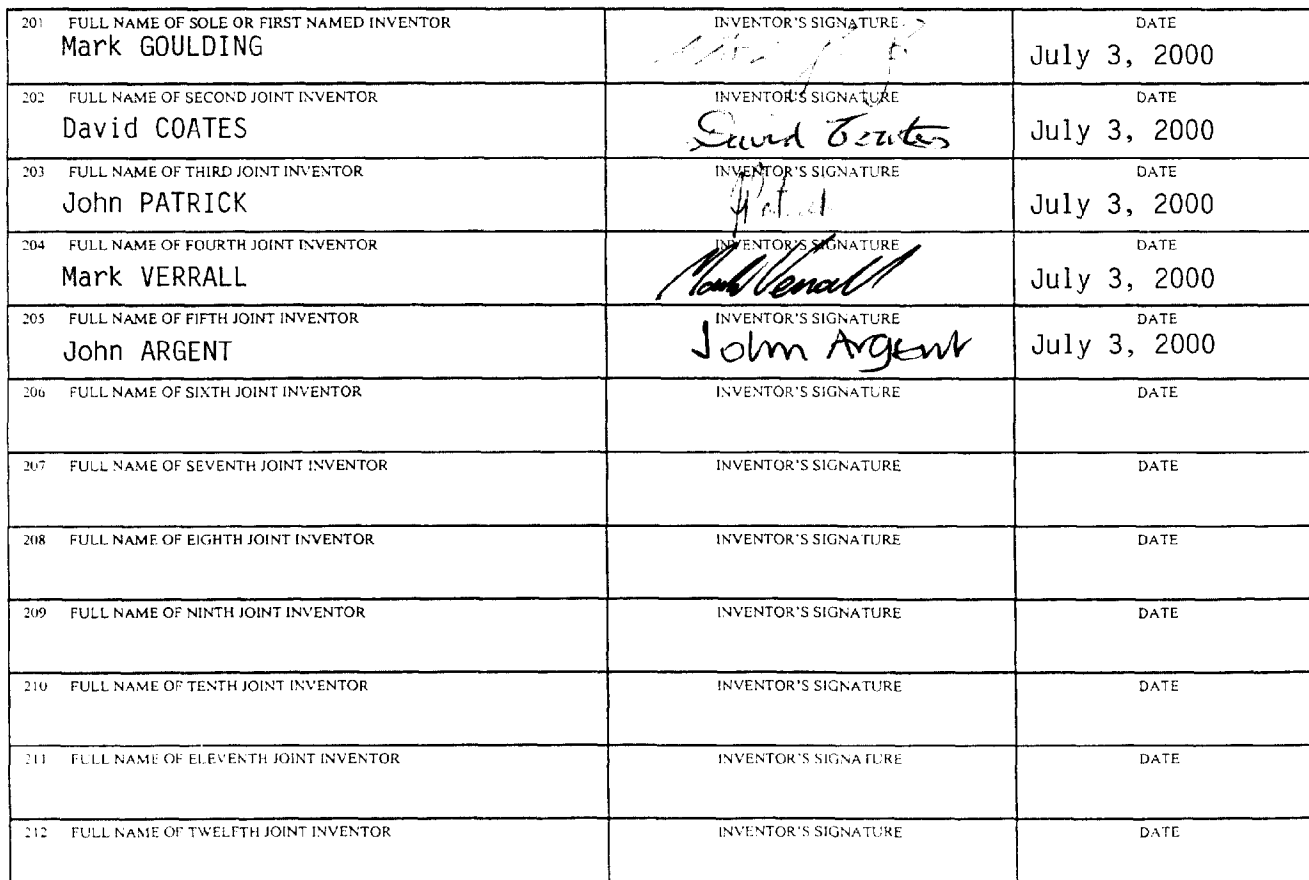 201 FULL NAME OF SOLE OR FIRST NAMED INVENTOR INVENTOR'S SIGNATURE DATE
Mark GOULDING July 3, 2000
202 FULL NAME OF SECOND JOINT INVENTOR INVENTOR'S SIGNATURE DATE
David COATES David Coates July 3, 2000
203 FULL NAME OF THIRD JOINT INVENTOR INVENTOR'S SIGNATURE DATE
John PATRICK July 3, 2000
204 FULL NAME OF FOURTH JOINT INVENTOR INVENTOR'S SIGNATURE DATE
Mark VERRALL Mark Verrall July 3, 2000
205 FULL NAME OF FIFTH JOINT INVENTOR INVENTOR'S SIGNATURE DATE
John ARGENT John Argent July 3, 2000
206 FULL NAME OF SIXTH JOINT INVENTOR INVENTOR'S SIGNATURE DATE
207 FULL NAME OF SEVENTH JOINT INVENTOR INVENTOR'S SIGNATURE DATE
208 FULL NAME OF EIGHTH JOINT INVENTOR INVENTOR'S SIGNATURE DATE
209 FULL NAME OF NINTH JOINT INVENTOR INVENTOR'S SIGNATURE DATE
210 FULL NAME OF TENTH JOINT INVENTOR INVENTOR'S SIGNATURE DATE
211 FULL NAME OF ELEVENTH JOINT INVENTOR INVENTOR'S SIGNATURE DATE
212 FULL NAME OF TWELFTH JOINT INVENTOR INVENTOR'S SIGNATURE DATE